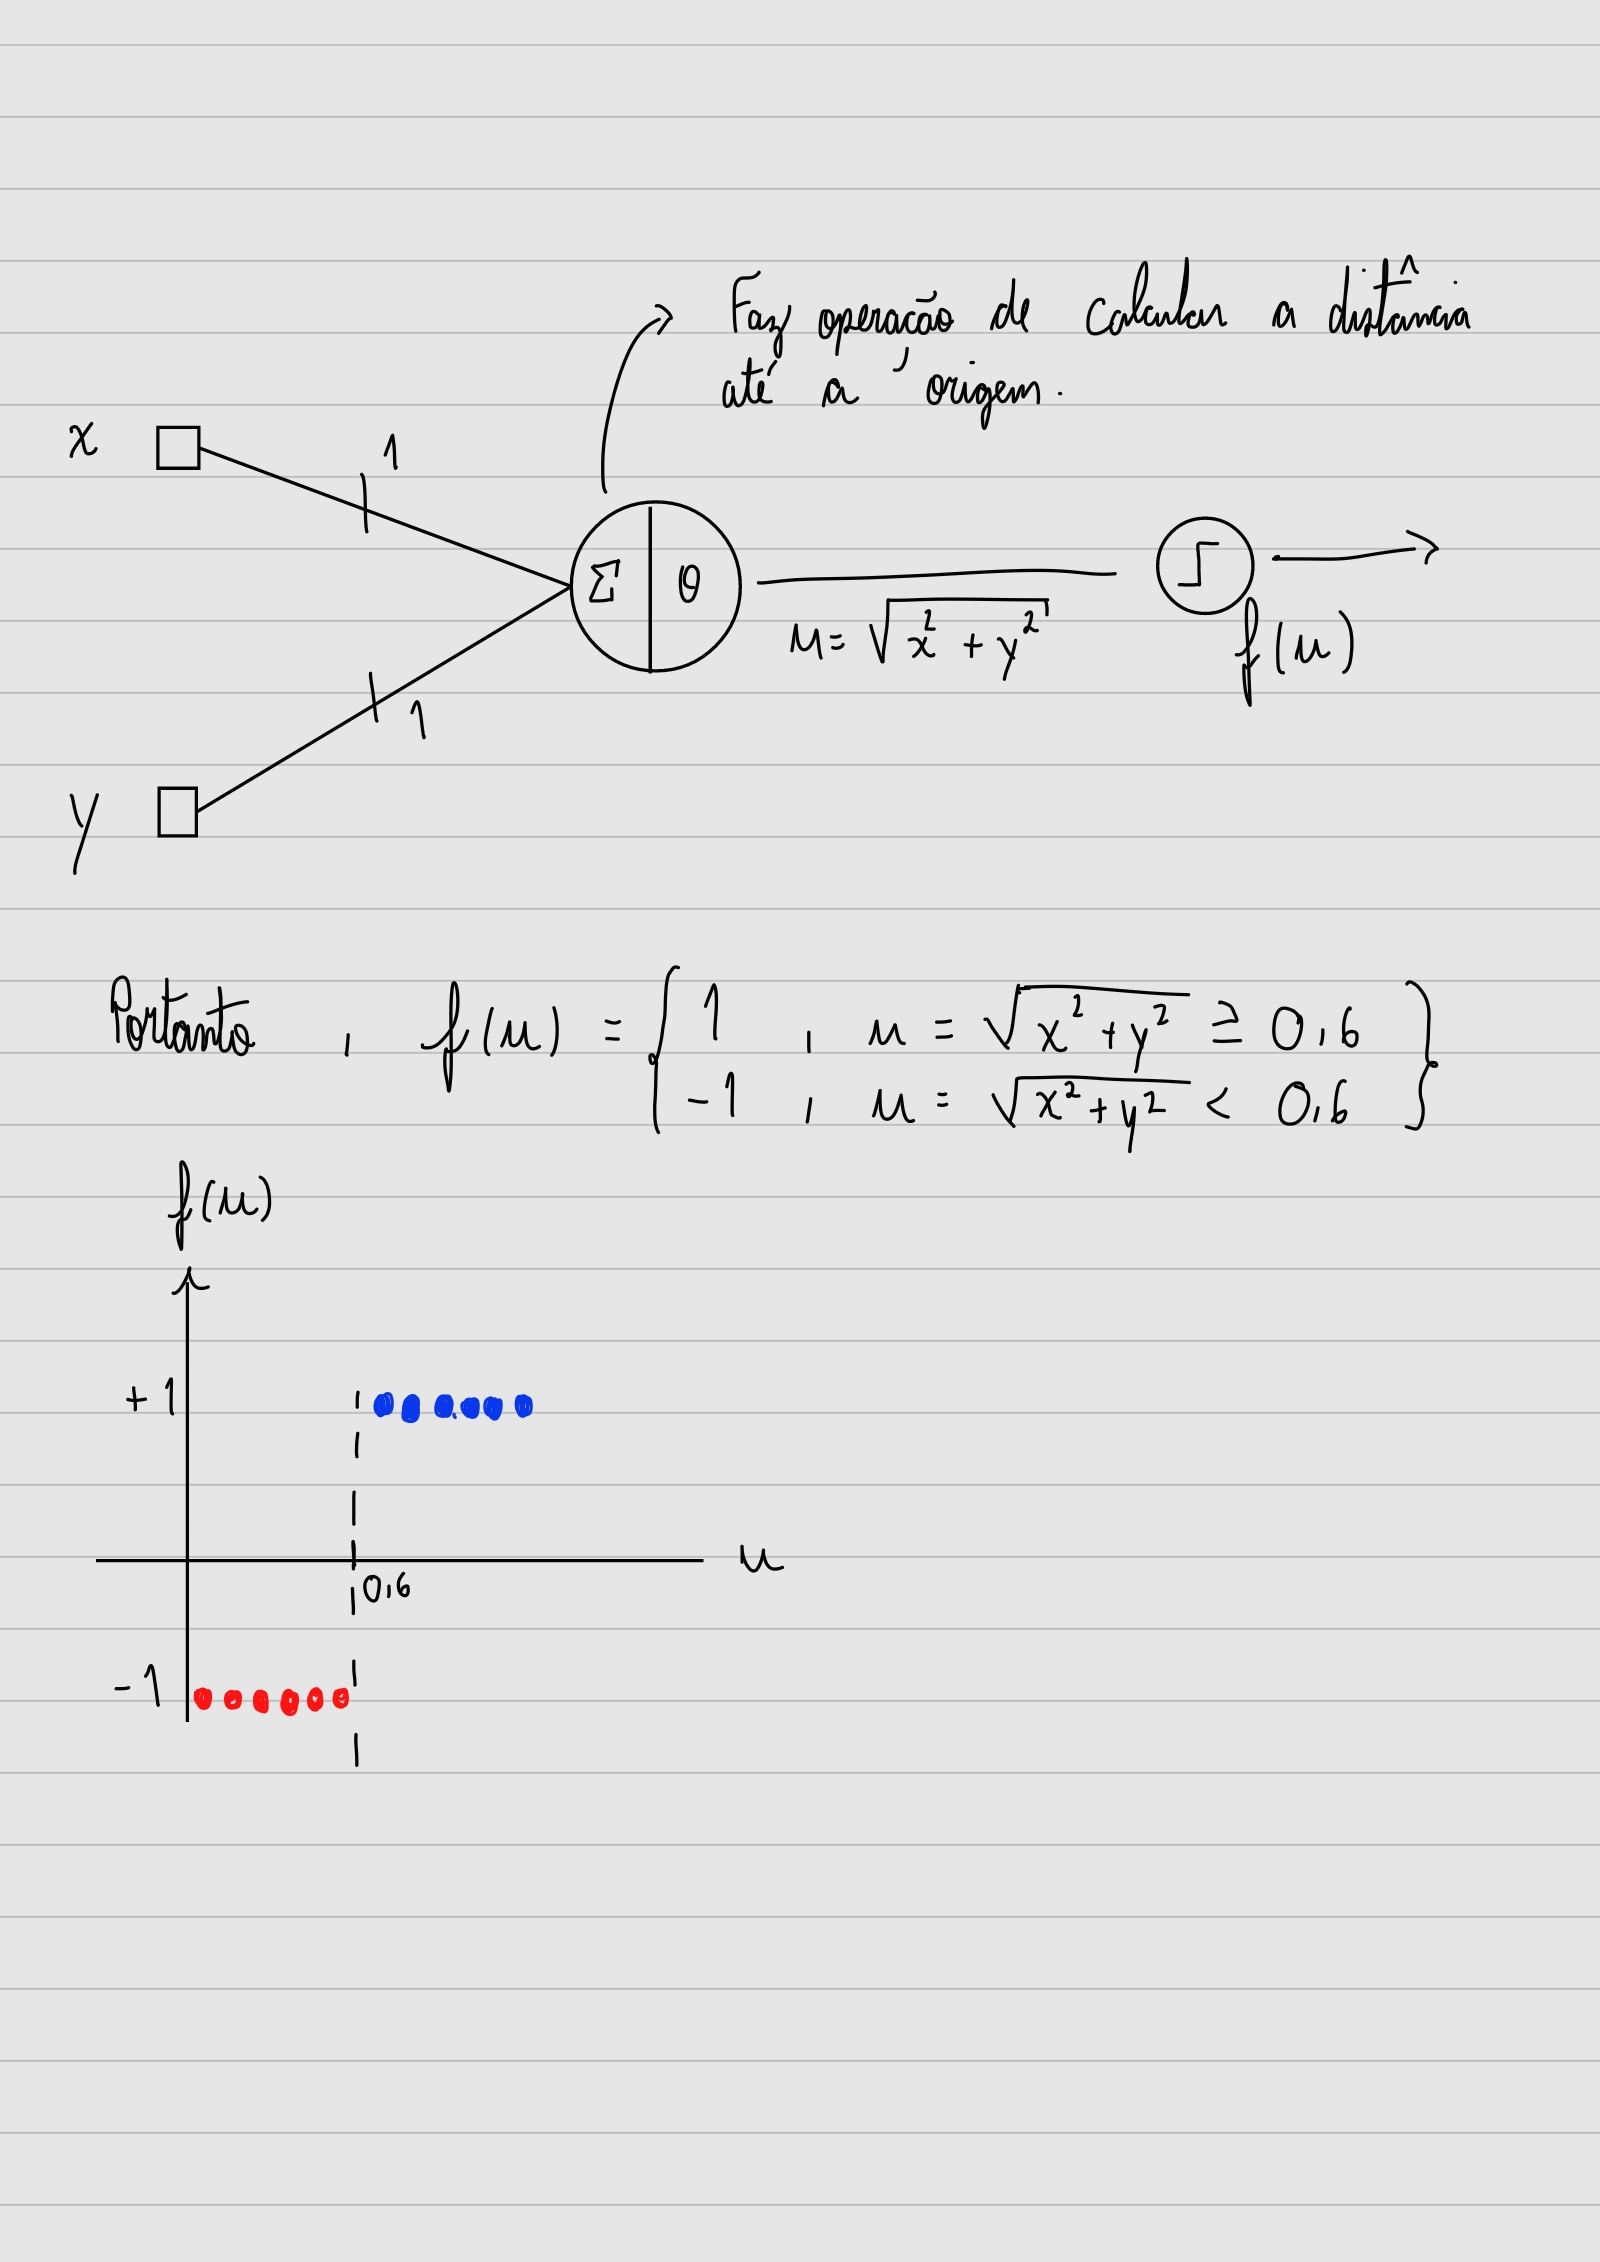 Faz operação de calcular a distância
até a origem.
x 1
Σ θ
u = √x² + y²
f(u)
1
y
Portanto , f(u) = { 1 , u = √x² + y² ≥ 0,6
-1 , u = √x² + y² < 0,6 }
f(u)
+1
u
0,6
-1